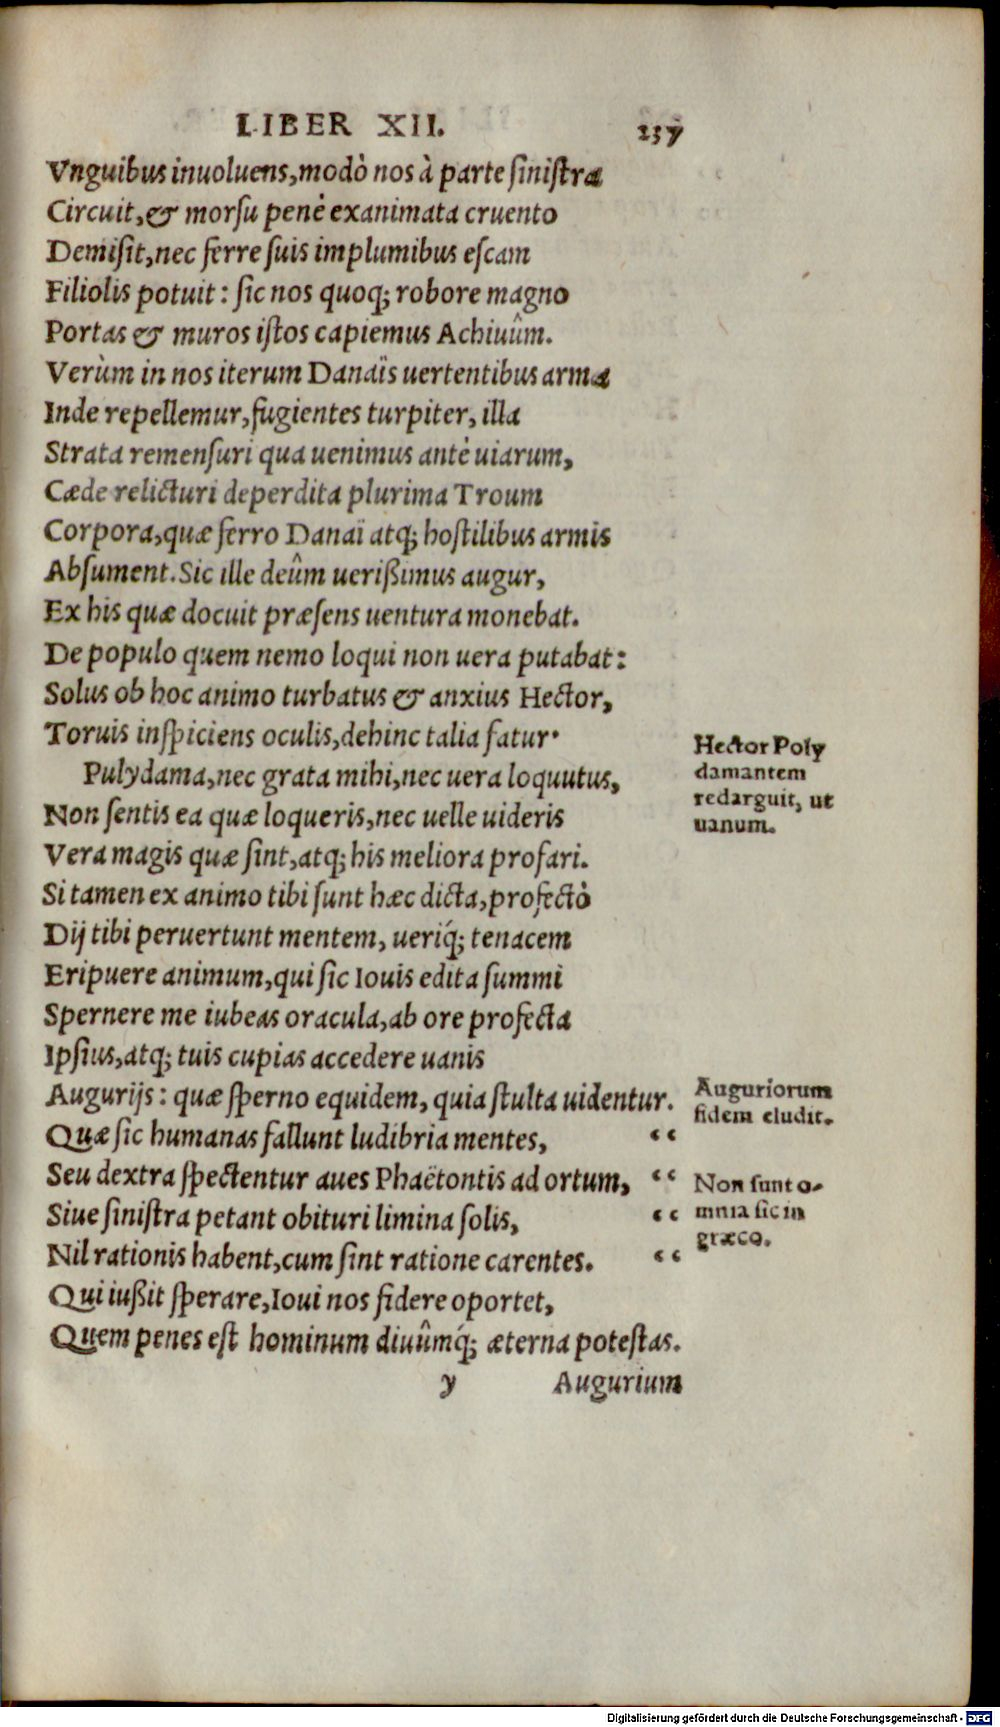 LIBER XII. 257
Vnguibus inuoluens, modò nos à parte siniſtra
Circuit, & morſu penè exanimata cruento
Demiſit, nec ferre ſuis implumibus eſcam
Filiolis potuit: ſic nos quoq; robore magno
Portas & muros iſtos capiemus Achiuûm.
Verùm in nos iterum Danaïs uertentibus arma
Inde repellemur, fugientes turpiter, illa
Strata remenſuri qua uenimus antè uiarum,
Cæde relicturi deperdita plurima Troum
Corpora, quæ ferro Danai atq; hoſtilibus armis
Abſument. Sic ille deûm ueriſsimus augur,
Ex his quæ docuit præſens uentura monebat.
De populo quem nemo loqui non uera putabat:
Solus ob hoc animo turbatus & anxius Hector,
Toruis inſpiciens oculis, dehinc talia fatur.
Hector Poly
damantem
redarguit, ut
uanum.
Pulydama, nec grata mihi, nec uera loquutus,
Non ſentis ea quæ loqueris, nec uelle uideris
Vera magis quæ ſint, atq; his meliora profari.
Si tamen ex animo tibi ſunt hæc dicta, profectò
Dij tibi peruertunt mentem, ueriq́; tenacem
Eripuere animum, qui ſic Iouis edita ſummi
Spernere me iubeas oracula, ab ore profecta
Ipſius, atq; tuis cupias accedere uanis
Augurijs: quæ ſperno equidem, quia ſtulta uidentur.
Auguriorum
fidem eludit.
Quæ ſic humanas fallunt ludibria mentes, “
Seu dextra ſpectentur aues Phaëtontis ad ortum, “
Siue ſiniſtra petant obituri limina ſolis, “
Nil rationis habent, cum ſint ratione carentes. “
Non ſunt o-
mnia ſic in
græco.
Qui iuſsit ſperare, Ioui nos fidere oportet,
Quem penes eſt hominum diuûmq́; æterna poteſtas.
y Augurium
Digitalisierung gefördert durch die Deutsche Forschungsgemeinschaft - DFG